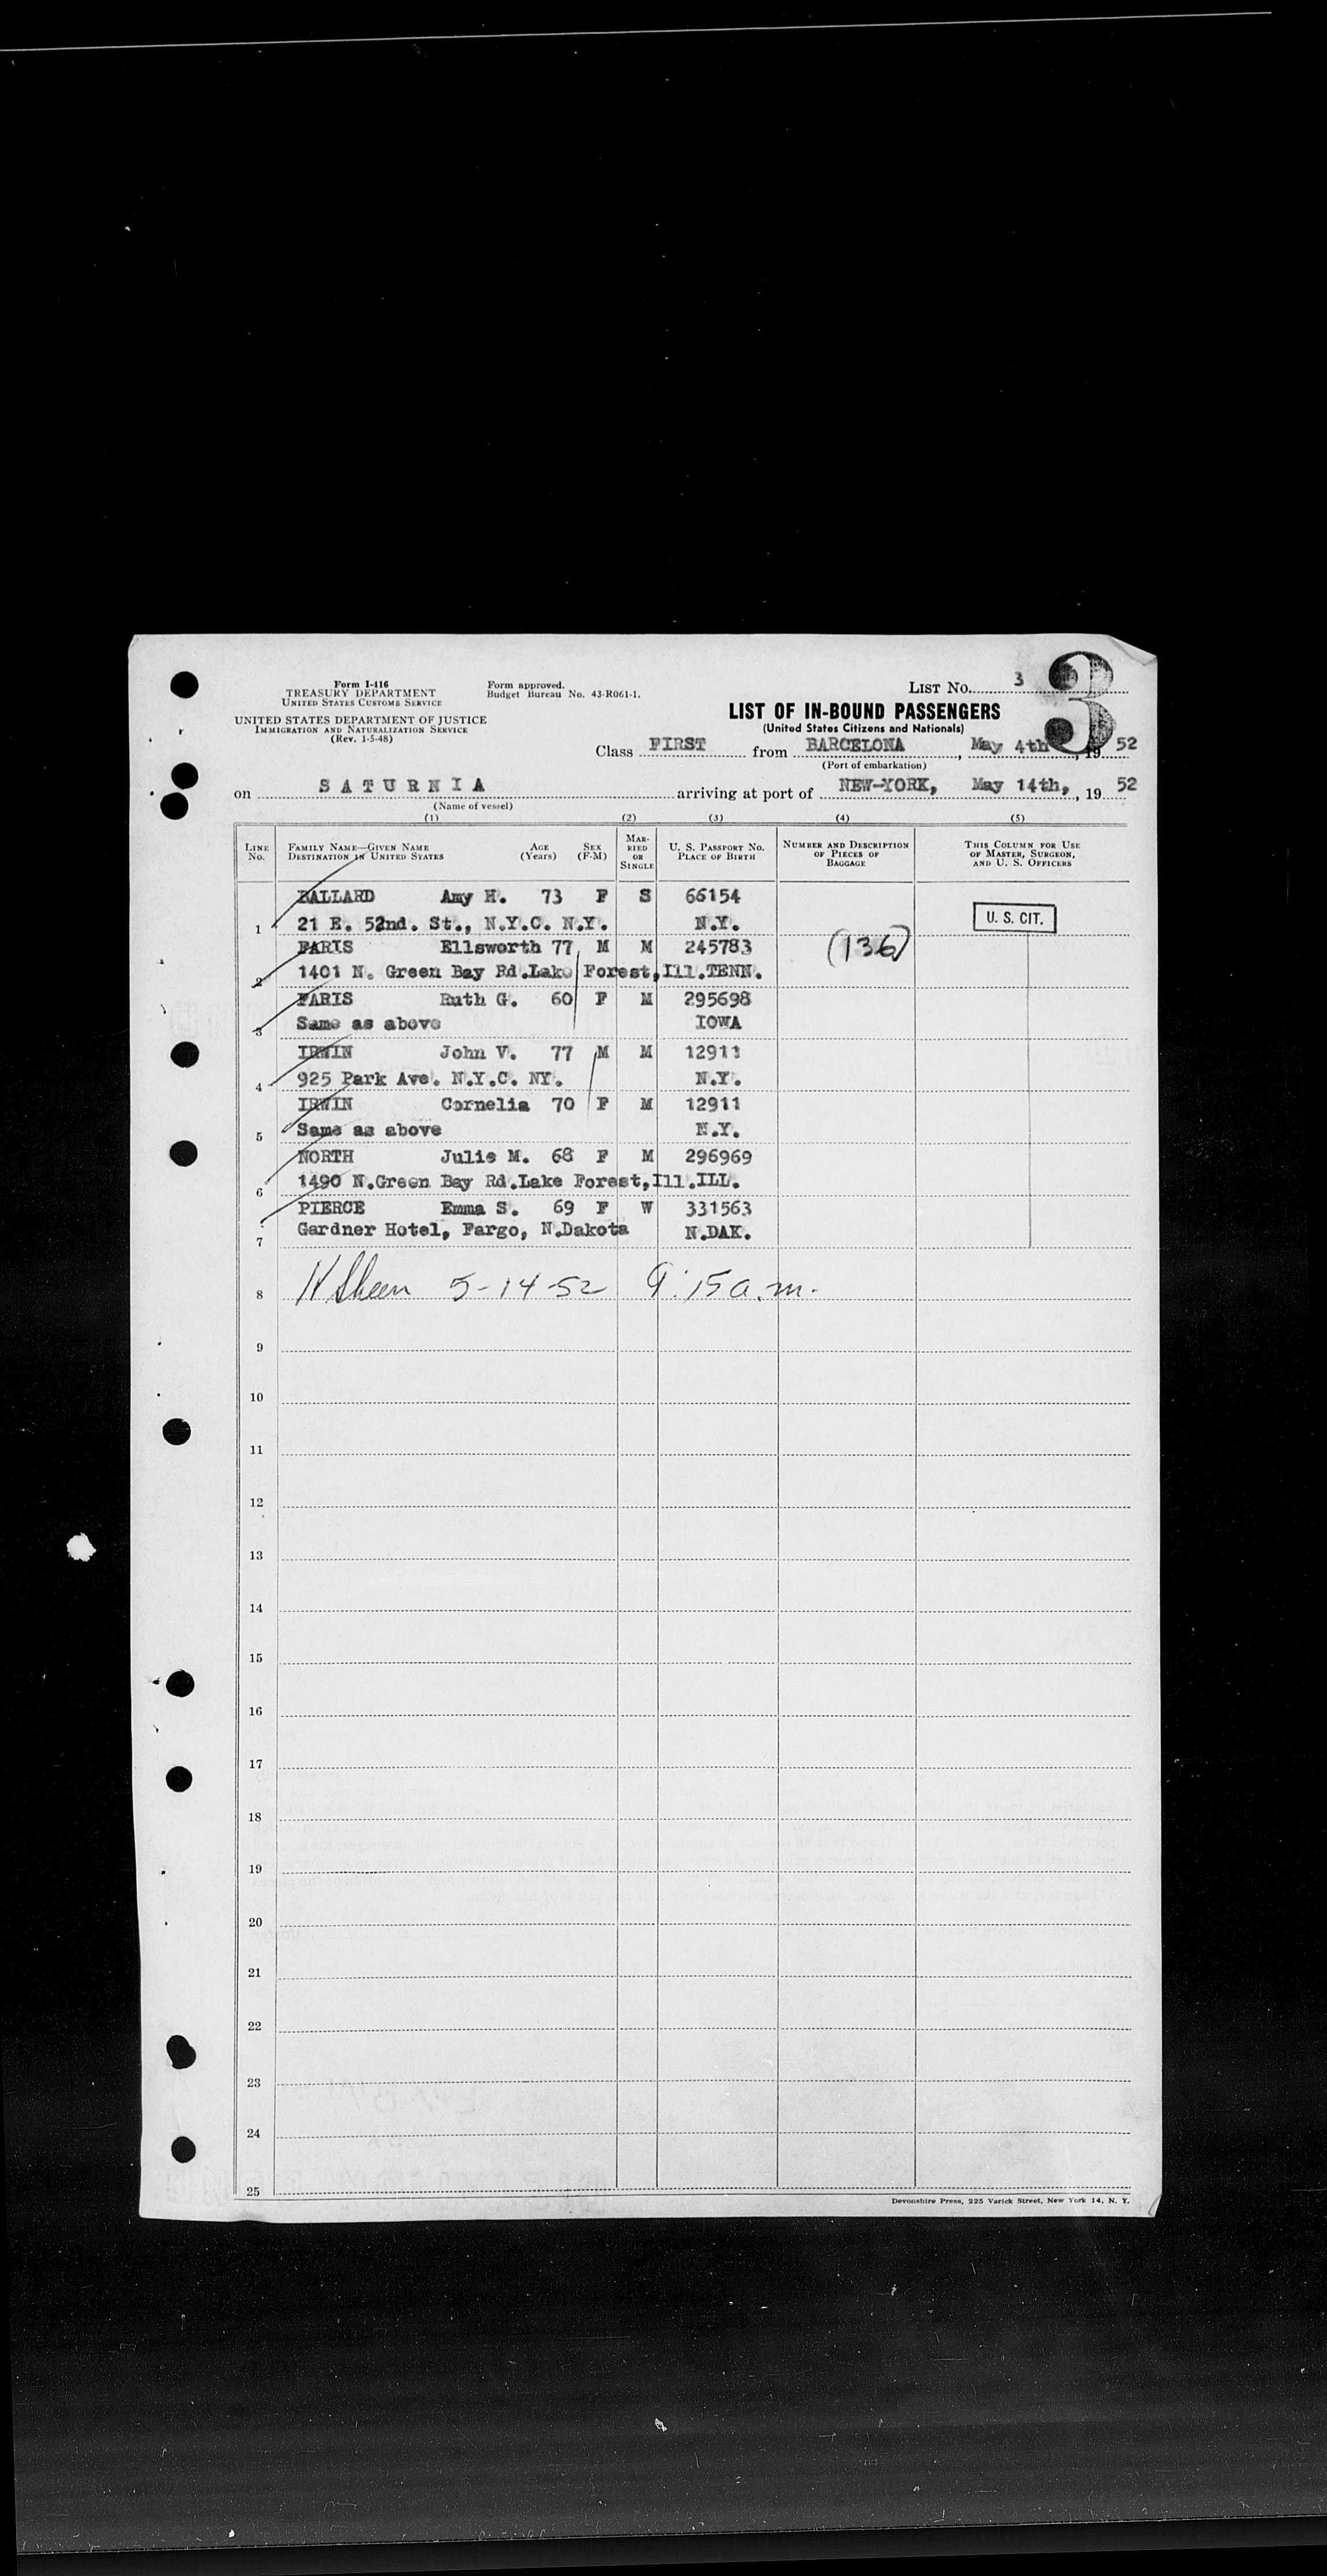 Form I-416
TREASURY DEPARTMENT
UNITED STATES CUSTOMS SERVICE
UNITED STATES DEPARTMENT OF JUSTICE
IMMIGRATION AND NATURALIZATION SERVICE
(Rev. 1-5-48)
Form approved.
Budget Bureau No. 43-R061-1.
LIST NO. 3
3
LIST OF IN-BOUND PASSENGERS
(United States Citizens and Nationals)
Class FIRST from BARCELONA, May 4th, 19 52
(Port of embarkation)
on SATURNIA arriving at port of NEW-YORK, May 14th, , 19 52
(Name of vessel)
(1) (2) (3) (4) (5)
LINE NO.
FAMILY NAME—GIVEN NAME
DESTINATION IN UNITED STATES
AGE (Years)
SEX (F-M)
MARRIED OR SINGLE
U. S. PASSPORT NO.
PLACE OF BIRTH
NUMBER AND DESCRIPTION OF PIECES OF BAGGAGE
THIS COLUMN FOR USE OF MASTER, SURGEON, AND U. S. OFFICERS
BALLARD Amy H. 73 F S 66154
1 21 E. 52nd. St., N.Y.C. N.Y. N.Y. U. S. CIT.
FARIS Ellsworth 77 M M 245783 (136)
2 1401 N. Green Bay Rd.Lake Forest,Ill.TENN.
FARIS Ruth G. 60 F M 295698
3 Same as above IOWA
IRWIN John V. 77 M M 12911
4 925 Park Ave. N.Y.C. NY. N.Y.
IRWIN Cornelia 70 F M 12911
5 Same as above N.Y.
NORTH Julie M. 68 F M 296969
6 1490 N.Green Bay Rd.Lake Forest,Ill.ILL.
PIERCE Emma S. 69 F W 331563
7 Gardner Hotel, Fargo, N.Dakota N.DAK.
8 5-14-52 9:15 a.m.
9
10
11
12
13
14
15
16
17
18
19
20
21
22
23
24
25
Devonshire Press, 225 Varick Street, New York 14, N. Y.